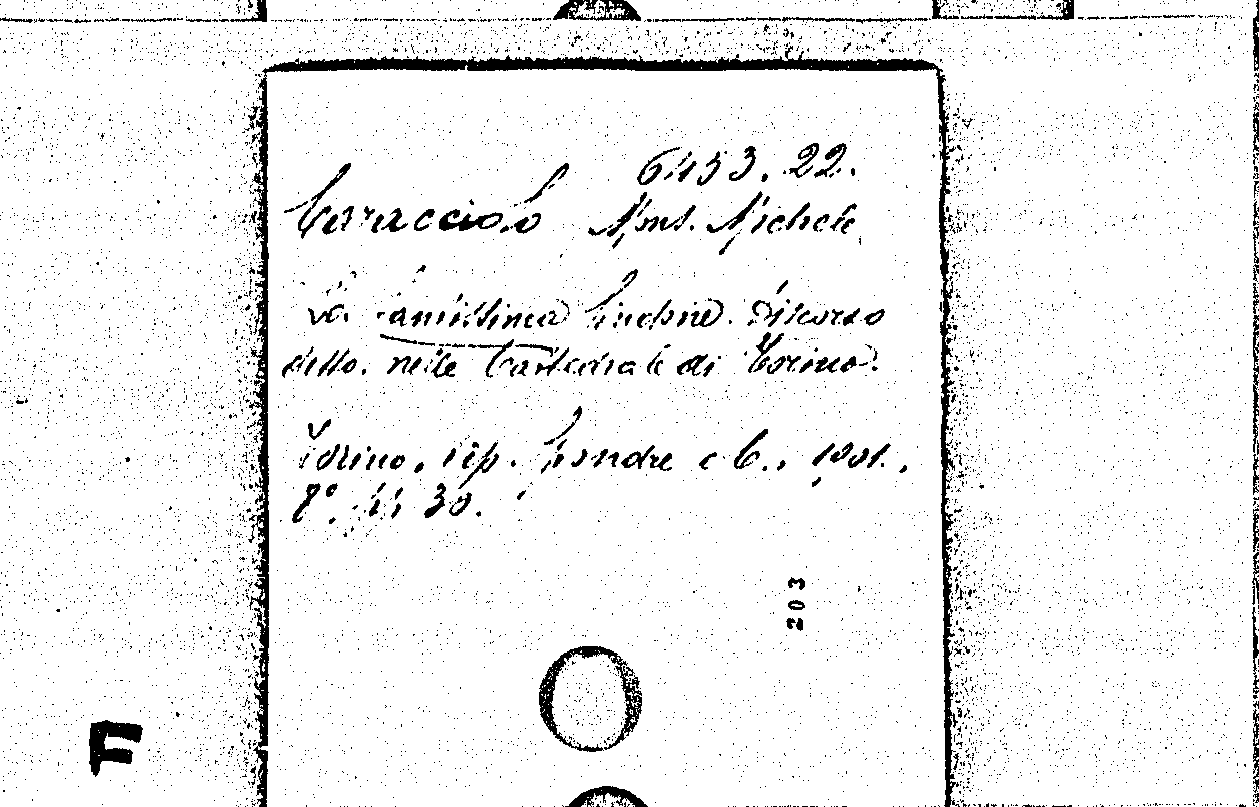 6453.22.
Caracciolo Mons. Michele
La Santissima Sindone. Discorso
detto nella Cattedrale di Torino.
Torino, tip. e C., 1901.,
8°. 30.
203
F